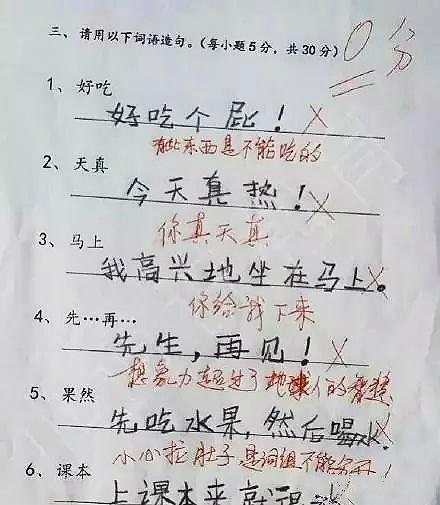 三、请用以下词语造句。(每小题5分，共30分) 0分
1、好吃
好吃个屁！
有些东西是不能吃的
2、天真
今天真热！
你真天真
3、马上
我高兴地坐在马上。
你给我下来
4、先…再…
先生，再见！
想象力超过了地球人的智慧
5、果然
先吃水果，然后喝水
小心拉肚子，是词组不能分开！
6、课本
上课本来就很